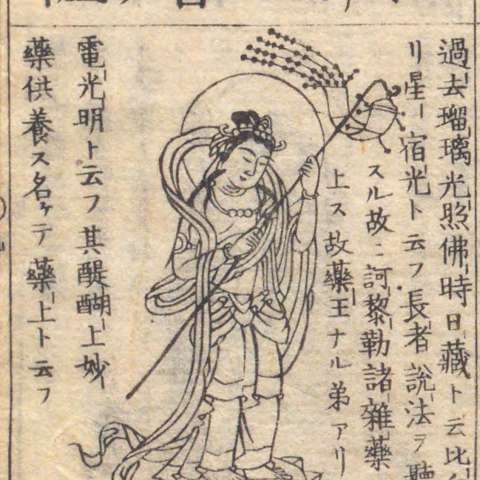 過去瑠璃光照佛時日藏ト云比
リ星宿光ト云フ長者說法ヲ聽
スル故ニ訶黎勒諸雜藥
上ス故藥王ナル弟アリ
電光明ト云フ其醍醐上妙
藥供養ス名ケテ藥上ト云フ